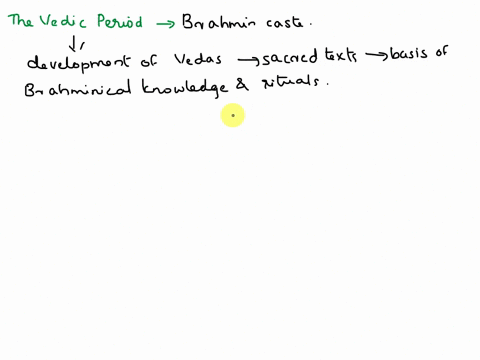 The Vedic Period → Brahmin caste.
development of Vedas → sacred texts → basis of
Brahminical knowledge & rituals.